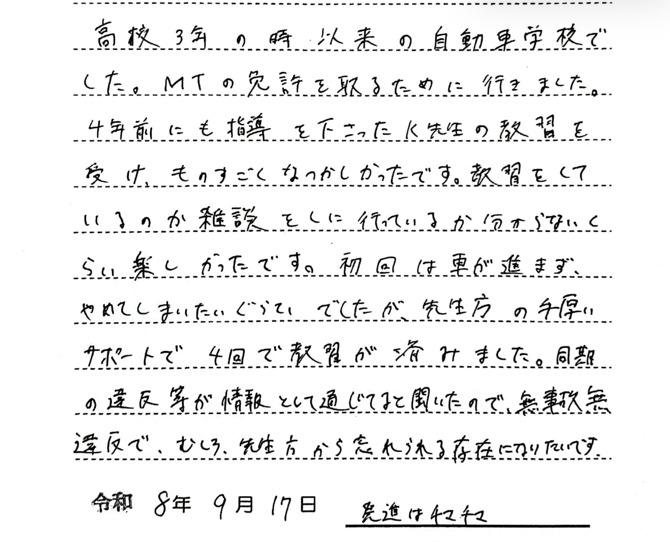 高校3年の時以来の自動車学校で
した。MTの免許を取るために行きました。
4年前にも指導を下さったK先生の教習を
受け、ものすごくなつかしかったです。教習をして
いるのか雑談をしに行っているか分からないく
らい楽しかったです。初回は車が進まず、
やめてしまいたいぐらいでしたが、先生方の手厚い
サポートで4回で教習が済みました。同期
の違反等が情報として通じてると聞いたので、無事故無
違反で、むしろ、先生方から忘れられる存在になりたいです
令和8年9月17日 発進はチマチマ